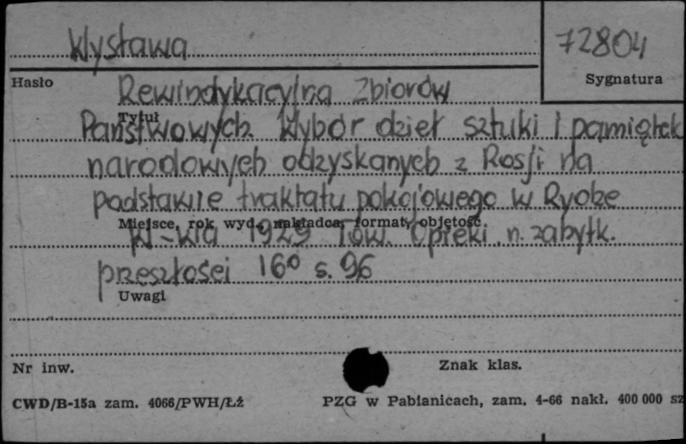 Wystawa
72804
Hasło
Sygnatura
Rewindykacyjna Zbiorów
Tytuł
Państwowych. Wybór dzieł sztuki i pamiątek
narodowych odzyskanych z Rosji na
podstawie traktatu pokojowego w Rydze
Miejsce, rok wyd., nakładca, format, objętość
W-wa 1929 Tow. Opieki n. zabytk.
przeszłości 16° s. 96
Uwagi
Nr inw.
Znak klas.
CWD/B-15a zam. 4066/PWH/Łż
PZG w Pabianicach, zam. 4-66 nakł. 400 000 sz